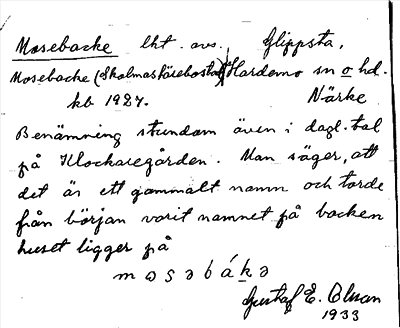 Mosebacke lht. avs. Glippsta,
Mosebacke (Skolmästarebostad) Hardemo sn o hd.
kb 1927. Närke
Benämning stundom även i dagl. tal
på Klockaregården. Man säger, att
det är ett gammalt namn och torde
från början varit namnet på backen
huset ligger på
mosəbákə
Gustaf E. Olsson
1933